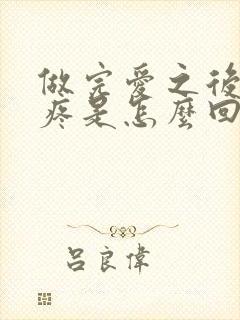 做完愛之後
疼是怎麼回
吕良偉